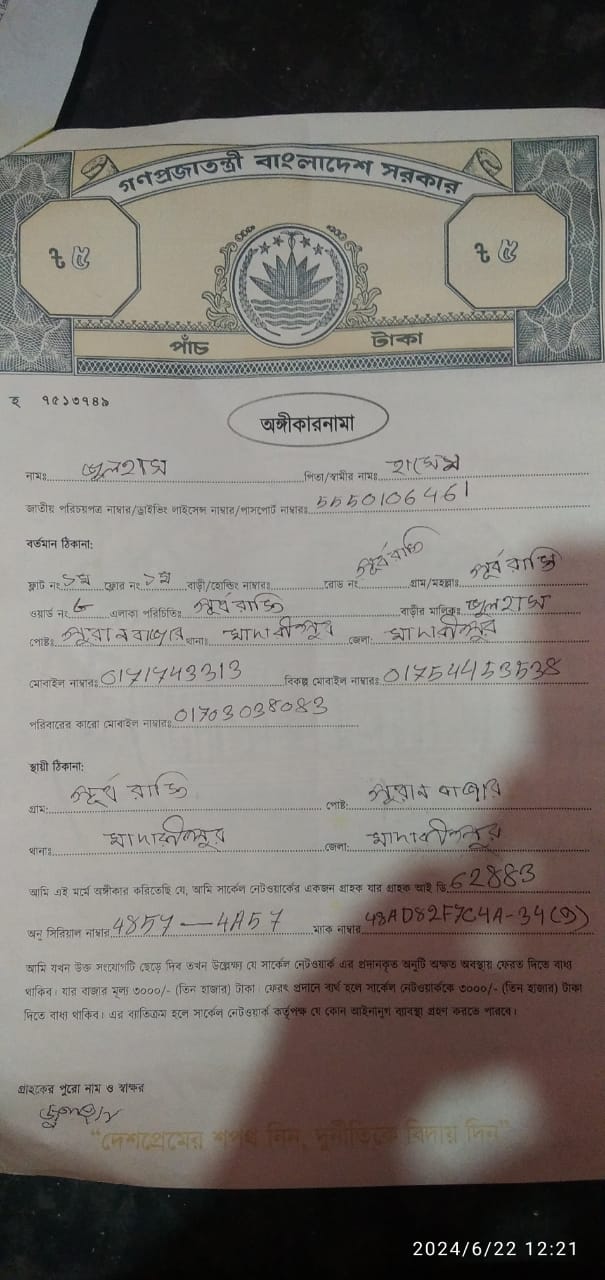 গণপ্রজাতন্ত্রী বাংলাদেশ সরকার
৳ ৫ ৳ ৫
পাঁচ টাকা
হ ৭৫১৩৭৪৯
অঙ্গীকারনামা
নামঃ জুলহাস পিতা/স্বামীর নামঃ হাসেম
জাতীয় পরিচয়পত্র নাম্বার/ড্রাইভিং লাইসেন্স নাম্বার/পাসপোর্ট নাম্বারঃ 5550106461
বর্তমান ঠিকানা:
ফ্লাট নং ১ম ফ্লোর নং ১ম বাড়ী/হোল্ডিং নাম্বারঃ রোড নং পূর্ব রাস্তি গ্রাম/মহল্লাঃ পূর্ব রাস্তি
ওয়ার্ড নং ৬ এলাকা পরিচিতিঃ পূর্ব রাস্তি বাড়ীর মালিকঃ জুলহাস
পোষ্টঃ পুরান বাজার থানাঃ মাদারীপুর জেলা: মাদারীপুর
মোবাইল নাম্বারঃ 0171743313 বিকল্প মোবাইল নাম্বারঃ 017544453538
পরিবারের কারো মোবাইল নাম্বারঃ 01703038083
স্থায়ী ঠিকানা:
গ্রাম: পূর্ব রাস্তি পোষ্ট: পুরান বাজার
থানাঃ মাদারীপুর জেলা: মাদারীপুর
আমি এই মর্মে অঙ্গীকার করিতেছি যে, আমি সার্কেল নেটওয়ার্কের একজন গ্রাহক যার গ্রাহক আই ডি 62883
অনু সিরিয়াল নাম্বার 4857 — 4A57 ম্যাক নাম্বার 48AD82F7C4A-34(9)
আমি যখন উক্ত সংযোগটি ছেড়ে দিব তখন উল্লেক্ষ্য যে সার্কেল নেটওয়ার্ক এর প্রদানকৃত অনুটি অক্ষত অবস্থায় ফেরত দিতে বাধ্য
থাকিব। যার বাজার মূল্য ৩০০০/- (তিন হাজার) টাকা। ফেরৎ প্রদানে ব্যর্থ হলে সার্কেল নেটওয়ার্ককে ৩০০০/- (তিন হাজার) টাকা
দিতে বাধ্য থাকিব। এর ব্যতিক্রম হলে সার্কেল নেটওয়ার্ক কর্তৃপক্ষ যে কোন আইনানুগ ব্যাবস্থা গ্রহণ করতে পারবে।
গ্রাহকের পুরো নাম ও স্বাক্ষর
জুলহাস
"দেশপ্রেমের শপথ নিন, দুর্নীতিকে বিদায় দিন"
2024/6/22 12:21